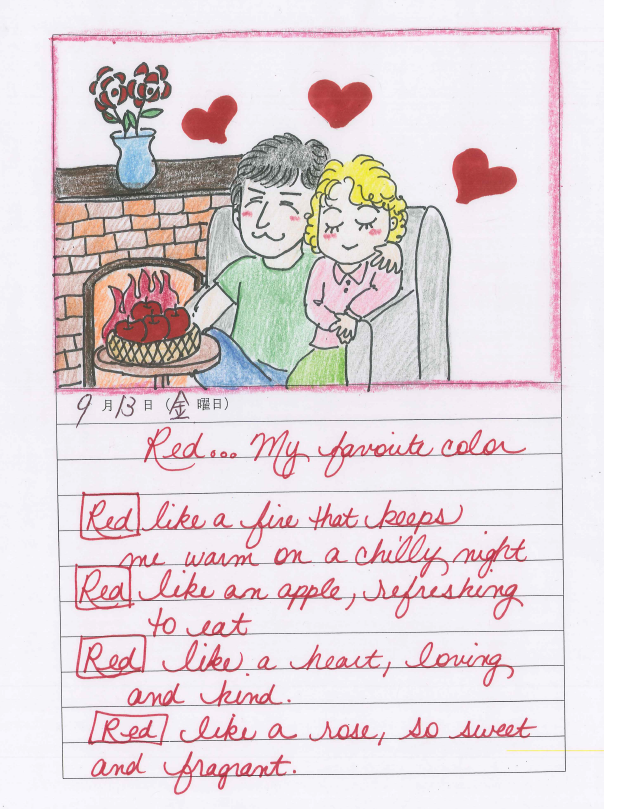 9月13日(金曜日)
Red... My favoute color
Red like a fire that keeps
me warm on a chilly night
Red like an apple, refreshing
to eat
Red like a heart, loving
and kind.
Red like a rose, so sweet
and fragrant.